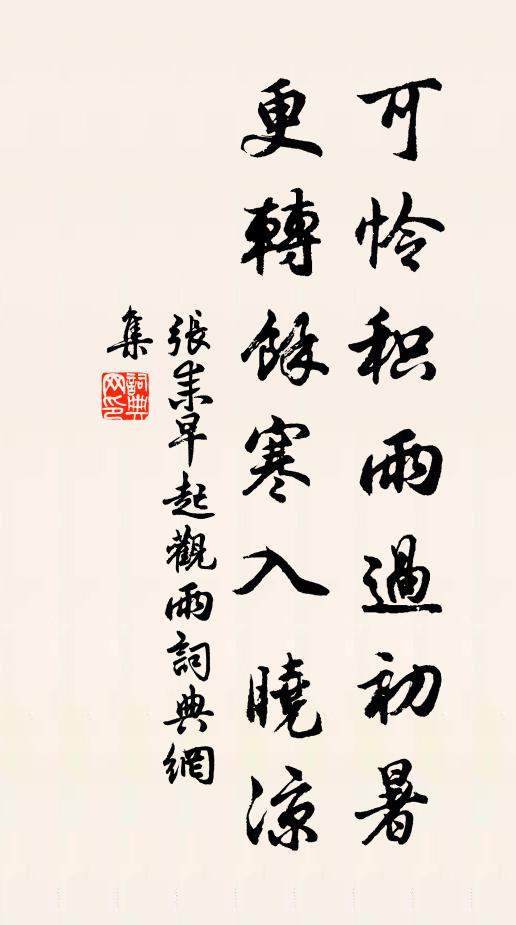 可怜积雨過初暑
更轉餘寒入曉涼
張耒早起觀雨詞典網
集
詞典
网印